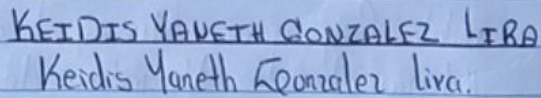 KEIDIS YANETH GONZALEZ LIRA
Keidis Yaneth Gonzalez lira.